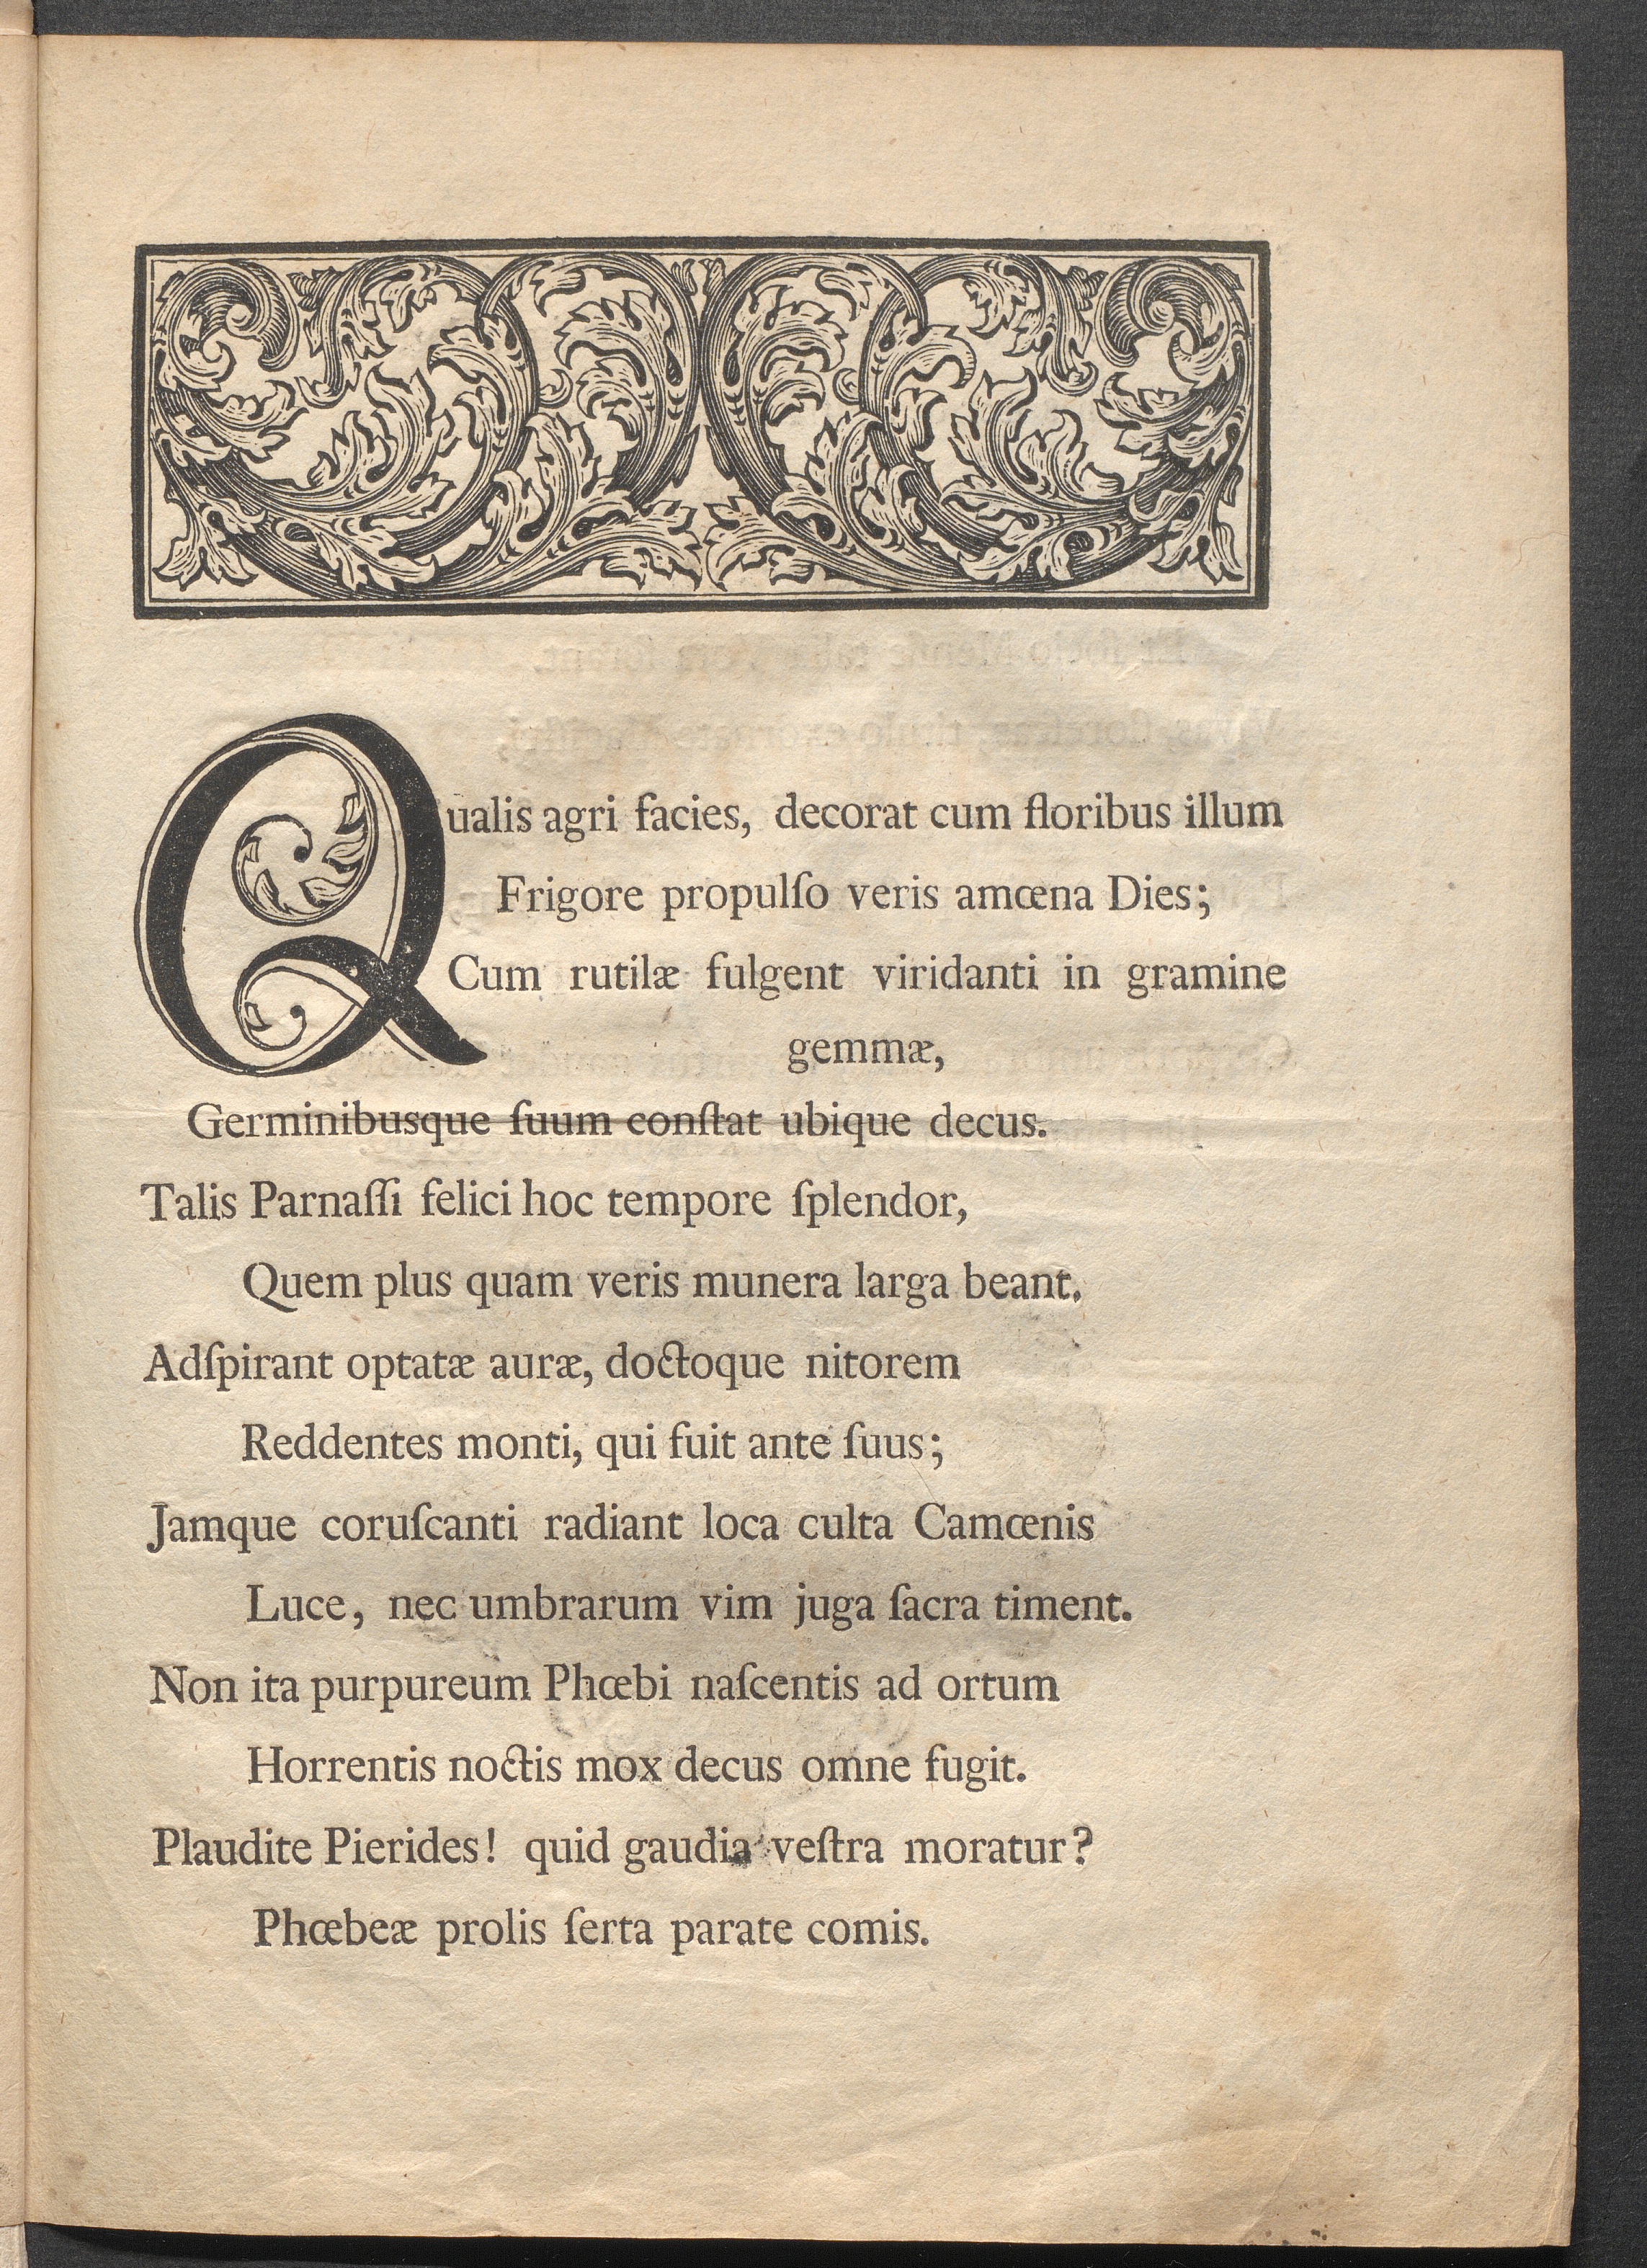 Qualis agri facies, decorat cum floribus illum
Frigore propulſo veris amœna Dies;
Cum rutilæ fulgent viridanti in gramine
gemmæ,
Germinibusque ſuum conſtat ubique decus.
Talis Parnaſſi felici hoc tempore ſplendor,
Quem plus quam veris munera larga beant.
Adſpirant optatæ auræ, doctoque nitorem
Reddentes monti, qui fuit ante ſuus;
Jamque coruſcanti radiant loca culta Camœnis
Luce, nec umbrarum vim juga ſacra timent.
Non ita purpureum Phœbi naſcentis ad ortum
Horrentis noctis mox decus omne fugit.
Plaudite Pierides! quid gaudia veſtra moratur?
Phœbeæ prolis ſerta parate comis.